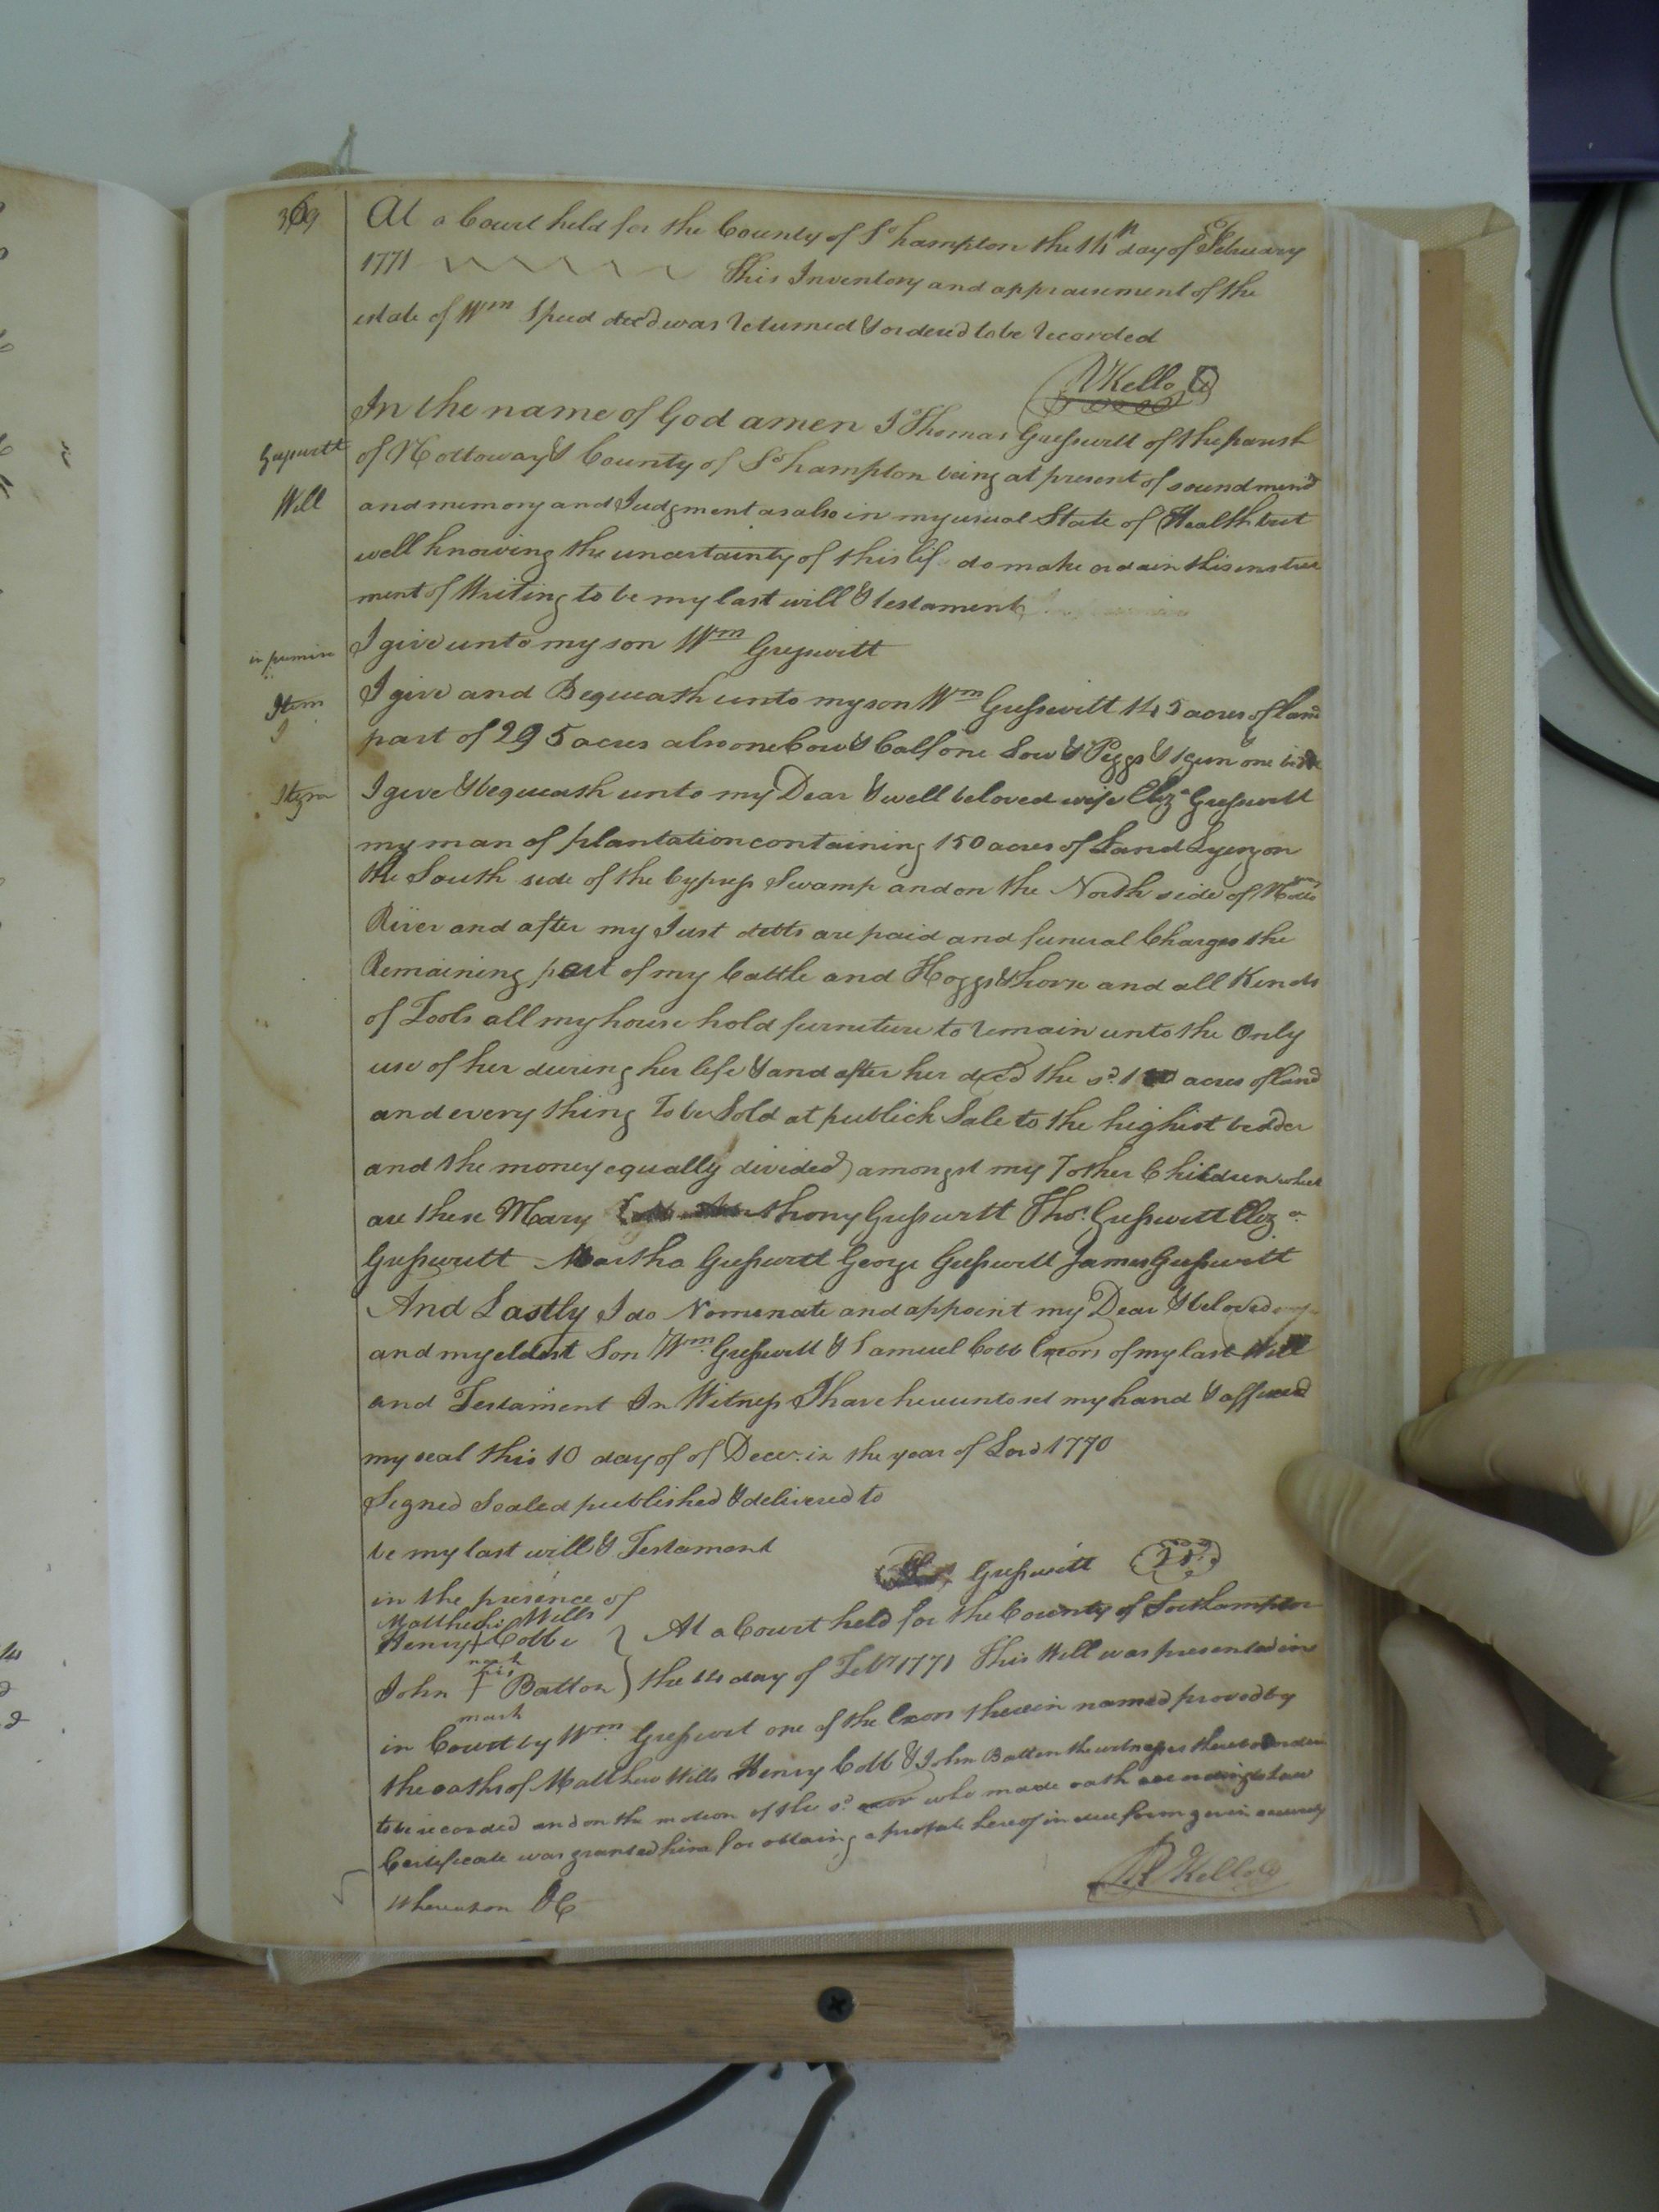 369
At a Court held for the County of So hampton the 14th day of February
1771 This Inventory and appraisement of the
estate of Wm Speed decd was returned & ordered to be recorded
R Kello
In the name of God amen I Thomas Gresswitt of the parish
Gresswitt
of Nottoway & County of So hampton being at present of sound mind
Will
and memory and Judgment as also in my usual State of Health but
well knowing the uncertainty of this lif do make ordain this instru
ment of Writing to be my last will & testament
I give unto my son Wm Gresswitt
Item
I give and Bequeath unto my son Wm Gresswitt 145 acres of land
I
part of 295 acres also one Cow & Calf one Sow & Piggs & 1 gun one
Item
I give & bequeath unto my Dear & well beloved wife Eliza Gresswitt
my man of plantation containing 150 acres of Land Lyeng on
the South side of the Cypress Swamp and on the North side of
River and after my Just debts are paid and funeral Charges the
Remaining part of my Cattle and Hoggs & horse and all Kinds
of Tools all my house hold furniture to remain unto the Only
use of her during her life & and after her decd the sd acres of land
and every thing To be Sold at publick Sale to the highist bedder
and the money equally divided amongst my 7 other Children which
are these Mary thony Gresswitt Thos. Gresswitt Eliza
Gresswitt Martha Gresswitt George Gresswitt James Gresswitt
And Lastly I do Nomenate and appoint my Dear & beloved
and my eldest Son Wm. Gresswitt & Samuel Cobb Exors of my last Will
and Testament In Witness I have hereunto set my hand & affixed
my seal this 10 day of of Decer. in the year of Lord 1770
Signed Sealed published & delivered to
be my last will & Testament
Gresswitt
in the presence of
Matthew Wills
Henry + Cobb
mark
his
John + Batton
mark
At a Court held for the County of Southampton
the 14 day of Feby 1771 This Will was presented in
in Court by Wm. Gresswit one of the Exors therein named proved by
the oaths of Matthew Wills Henry Cobb & John Batten the witnesses thereto
to be recorded and on the motion of the sd exor who made oath according to Law
Certificate was granted him for obtaing a probate hereof in due form given security
whereupon &C
R Kello